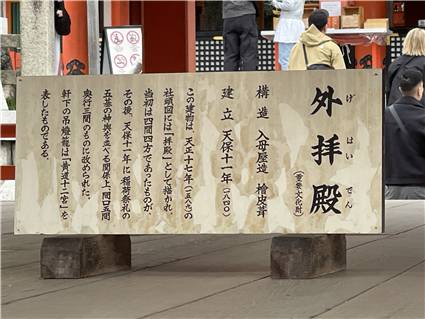 外拝殿
げはいでん
(重要文化財)
構造 入母屋造 檜皮葺
建立 天保十一年(一八四〇)
この建物は、天正十七年(一五八九)の
社頭図には「拝殿」として描かれ、
当初は四間四方であったものが、
その後、天保十一年に稲荷祭礼の
五基の神輿を並べる関係上、間口五間
奥行三間のものに改められた。
軒下の吊燈籠は「黄道十二宮」を
表したものである。